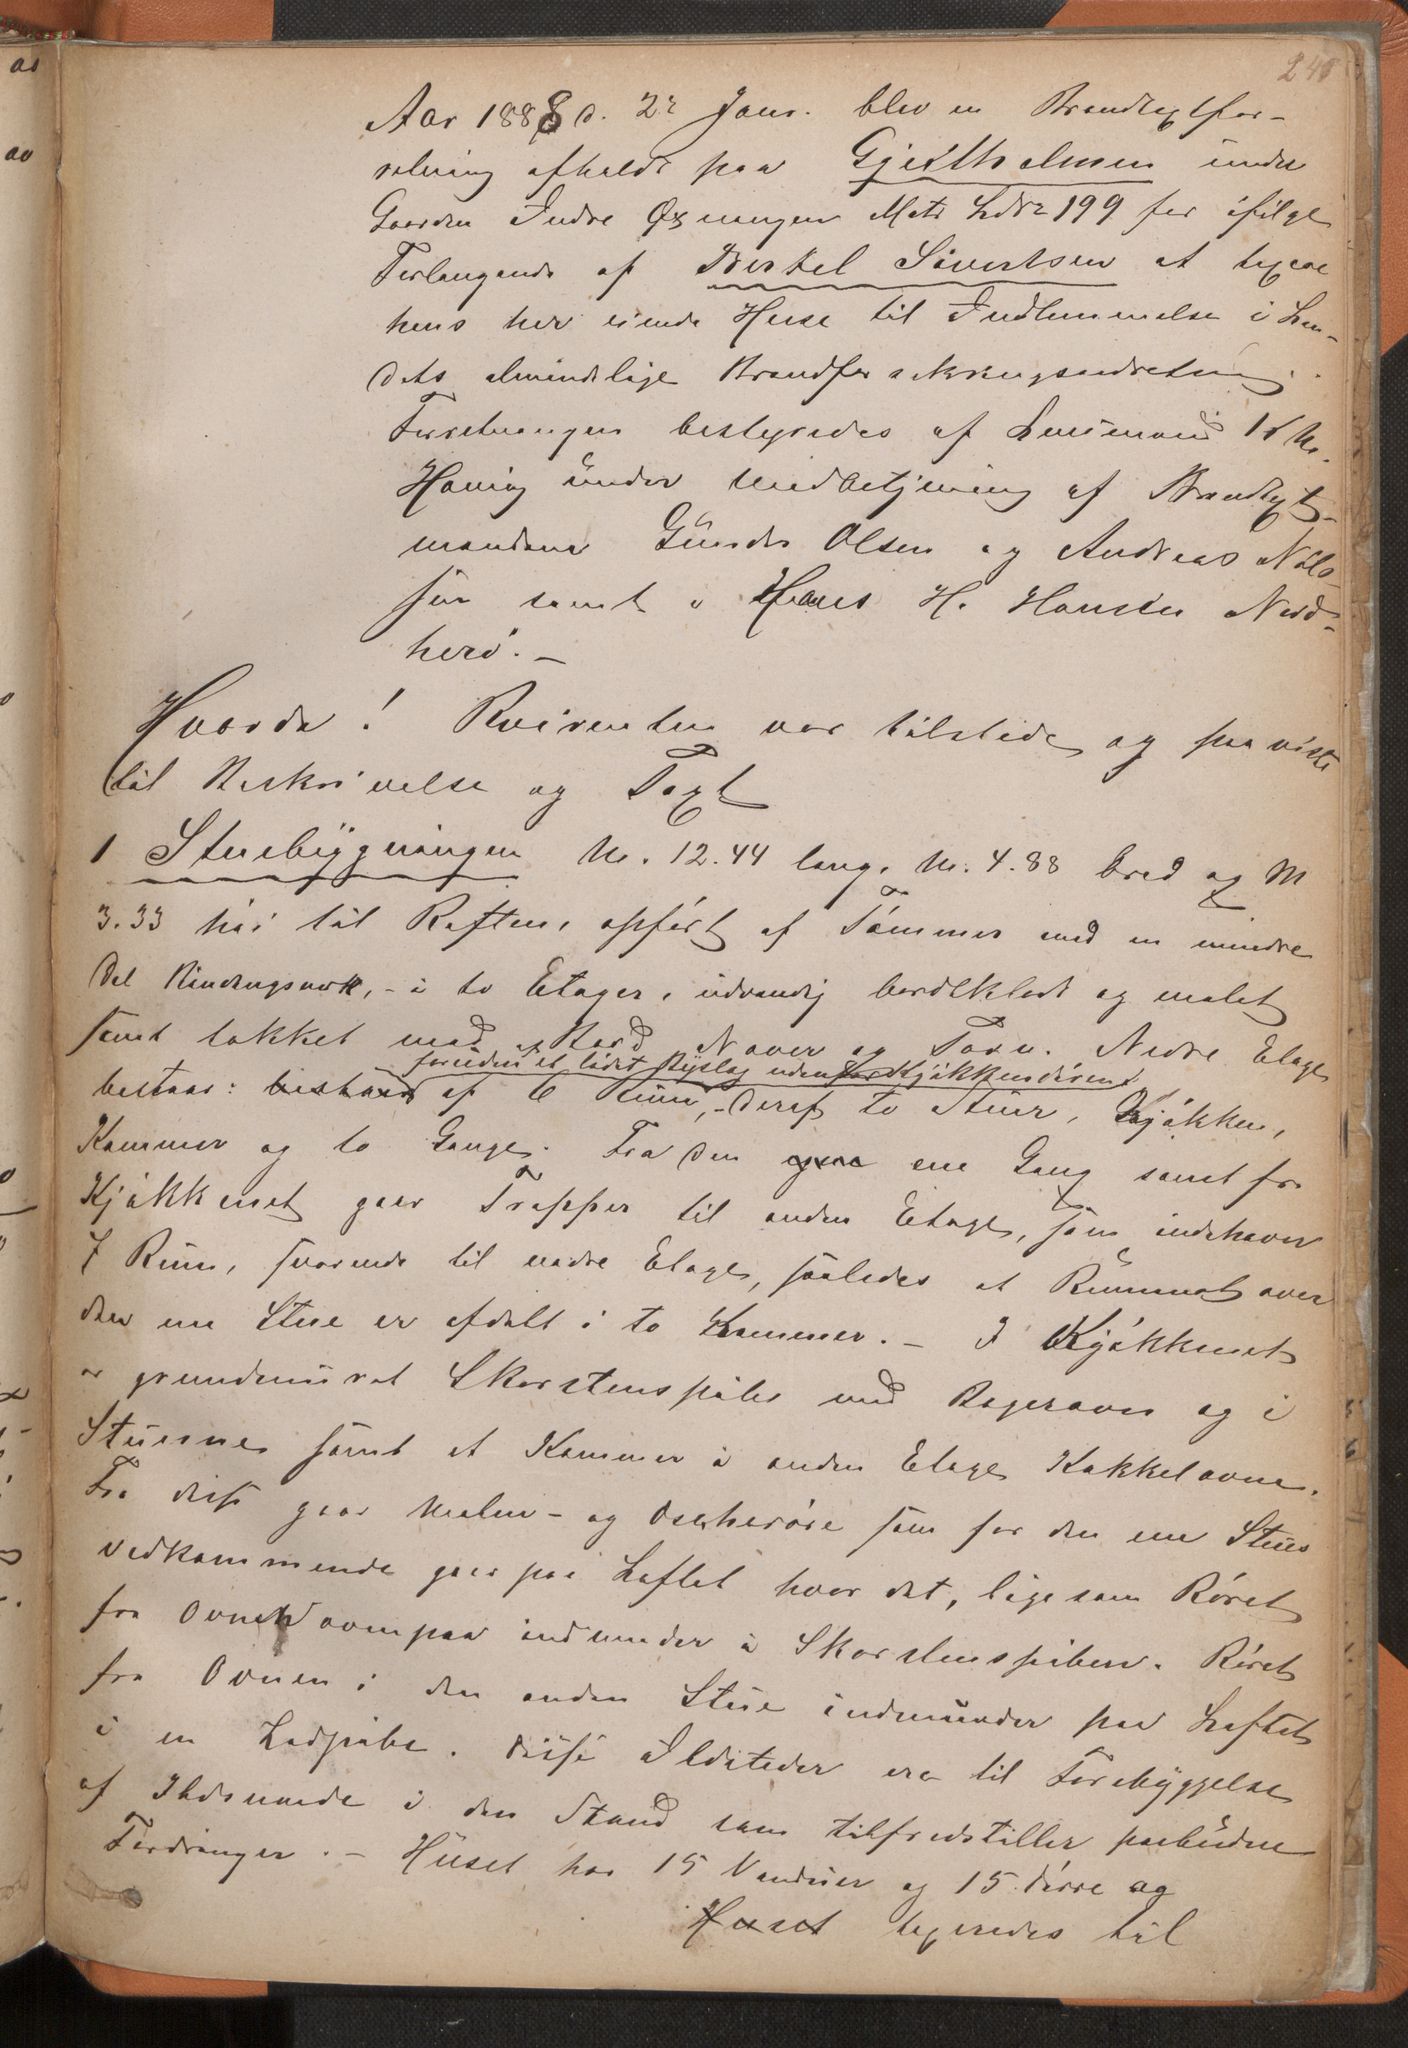 240
Aar 1888 d. 22 Janr. blev en Brandtaxtfor-
retning afholdt paa Gjeitholmen under
Gaarden Indre Øxningen Matr Lbnr 199 for ifølge
Forlangende af Berkel Sivertsen at taxere
hans her eiende Huse til Indlemmelse i Lan-
dets almindelige Brandforsikringsindretning.
Forretningen bestyredes af Lensmand
Havig under Medbetjening af Brandtaxt-
mændene Gunder Olsen og Andreas Nils-
sen samt Hans H. Hansen Nord-
herø. -
Hvorda! Rekvirenten var tilstede og paaviste
til Beskrivelse og Taxt
1 Stuebygningen M. 12.44 lang, M. 4.88 bred og M
3.33 høi til Raften, opført af Tømmer med en mindre
Del Bindingsverk, - i to Etager, udvendig bordklædt og malet
samt takket med Bord Næver og Torv. Nedre Etage
foruden et lidet Bislag udenfor Kjøkkendøren
bestaar: bestaar af 6 Rum, - deraf to Stuer, Kjøkken,
Kammer og to Gange. Fra den ene Gang samt fra
Kjøkkenet gaar Trapper til anden Etage, som indehaver
7 Rum, svarende til nedre Etage, saaledes at Rummet over
den ene Stue er afdelt i to Kammer. - I Kjøkkenet
er grundmuret Skorstenspibe med Bagerovn og i
Stuerne samt et Kammer i anden Etage Kakkelovne.
Fra disse gaar Malm- og Oscherøre som for den ene Stues
vedkommende gaar paa Loftet hvor det, ligesom Røret
fra Ovnen ovenpaa indmunder i Skorstenspiben. Røret
fra Ovnen i den anden Stue indmunder paa Loftet
i en Lodpibe. Disse Ildsteder ere til Forebyggelse
af Ildsvaade i den Stand som tilfredstiller paabudne
Fordringer. - Huset har 15 Vinduer og 15 Dørre og
Huset taxeredes til